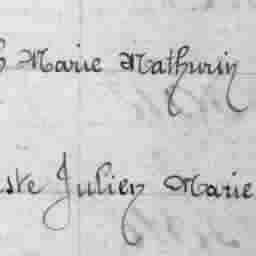 Marie Mathurin
ste Julien Marie